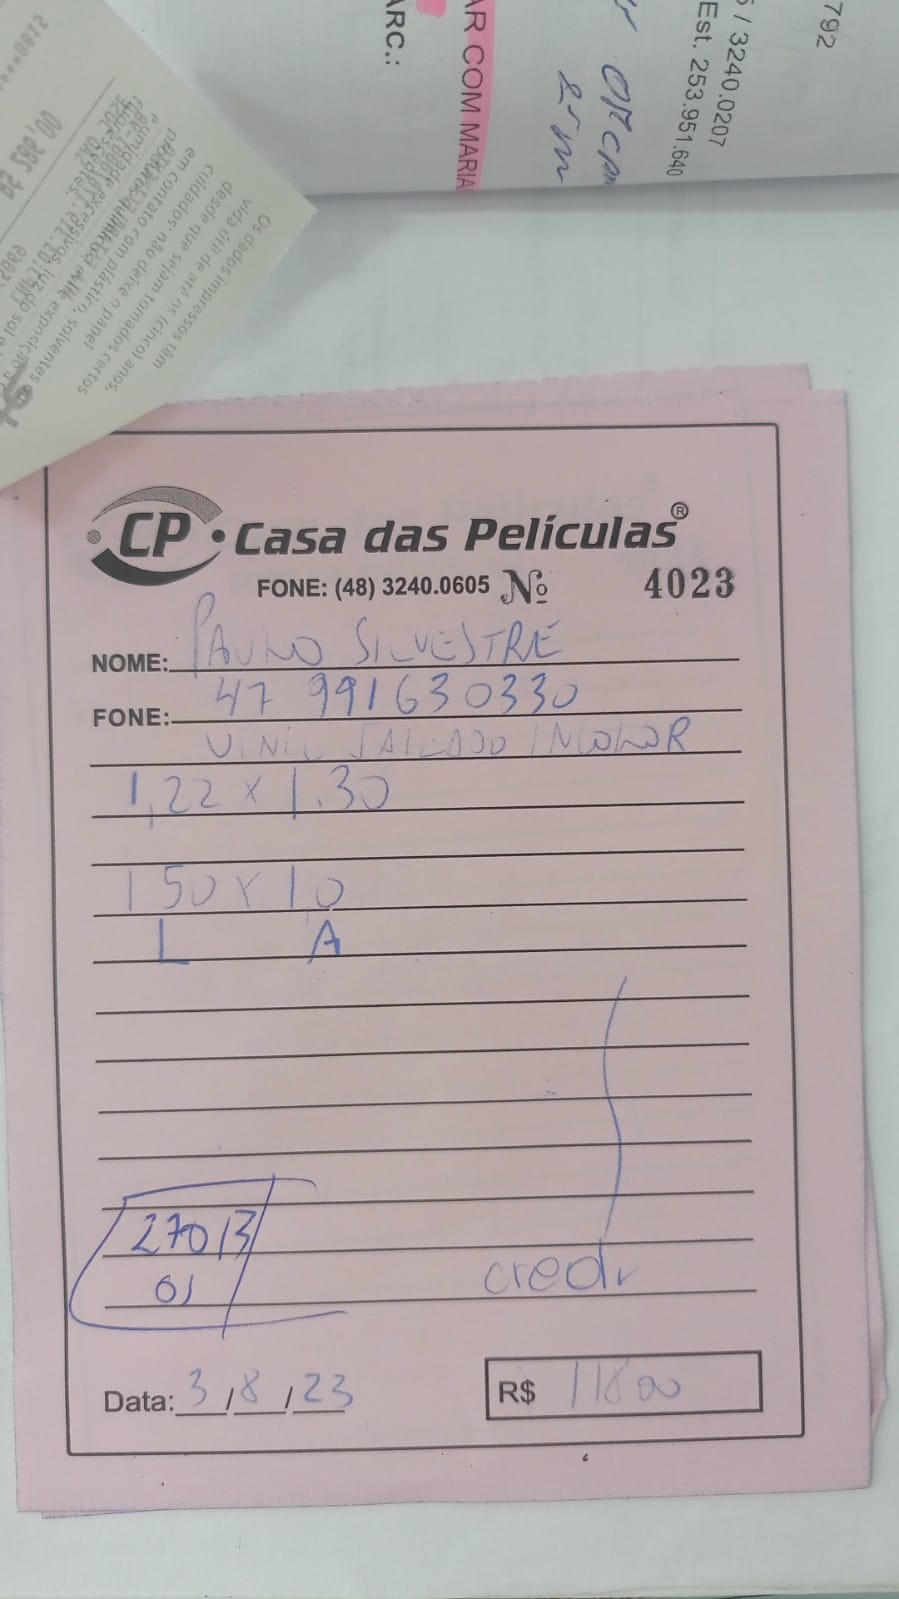 792
5 / 3240.0207
Est. 253.951.640
AR COM MARIA
ARC.:
Os dados impressos têm
vida útil de até 05 (cinco) anos,
desde que sejam tomados certos
cuidados: não deixe o papel
em contato com plástico, solventes
CP Casa das Películas®
FONE: (48) 3240.0605 Nº 4023
NOME: PAULO SILVESTRE
FONE: 47 991630330
VINIL JATEADO INCOLOR
1,22 x 1.30
150 x 10
L A
27013
credi
Data: 3/8/23
R$ 118 00